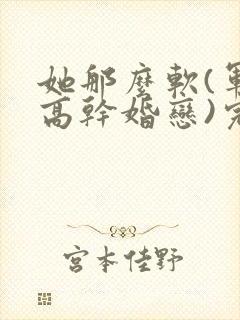 她那麼軟(軍
高幹婚戀)完
宮本佳野